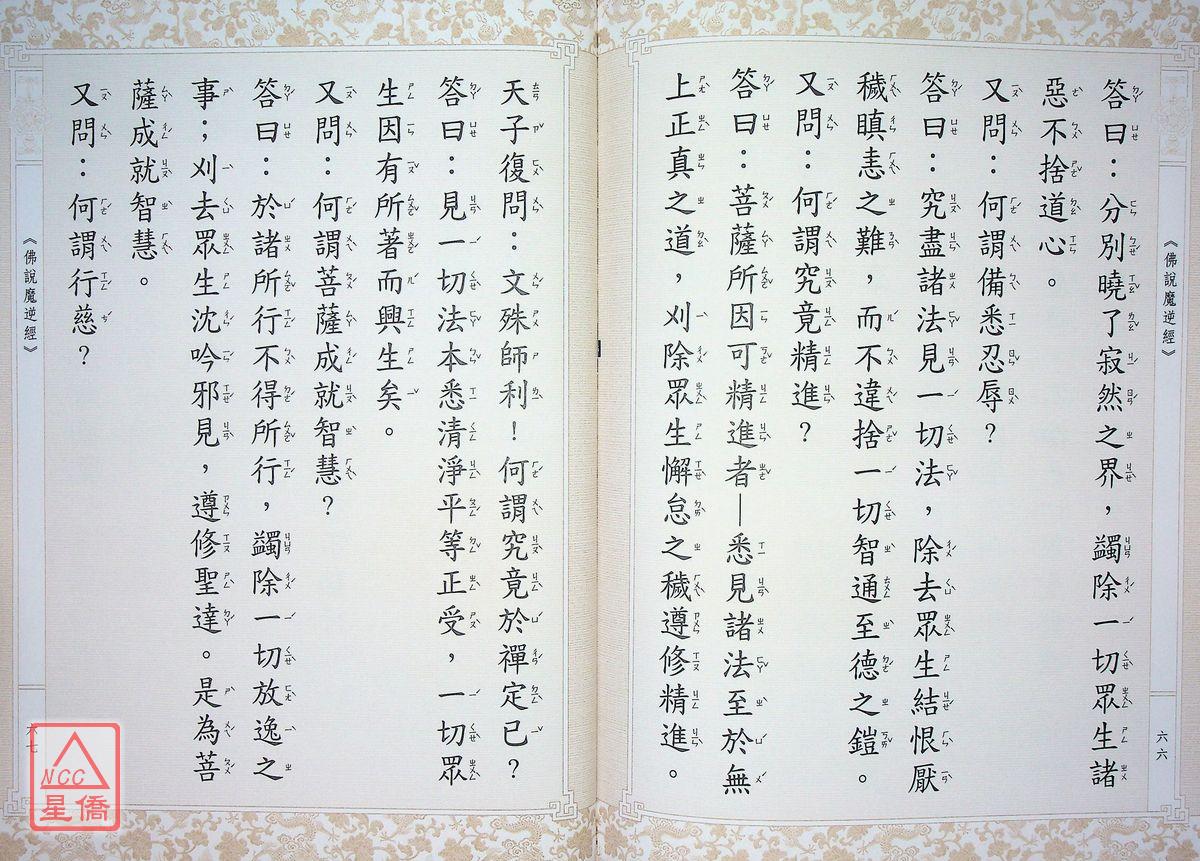 《佛說魔逆經》
六六
答曰：分別曉了寂然之界，蠲除一切眾生諸
惡不捨道心。
又問：何謂備悉忍辱？
答曰：究盡諸法見一切法，除去眾生結恨厭
穢瞋恚之難，而不違捨一切智通至德之鎧。
又問：何謂究竟精進？
答曰：菩薩所因可精進者—悉見諸法至於無
上正真之道，刈除眾生懈怠之穢遵修精進。
天子復問：文殊師利！何謂究竟於禪定已？
答曰：見一切法本悉清淨平等正受，一切眾
生因有所著而興生矣。
又問：何謂菩薩成就智慧？
答曰：於諸所行不得所行，蠲除一切放逸之
事；刈去眾生沈吟邪見，遵修聖達。是為菩
薩成就智慧。
又問：何謂行慈？
《佛說魔逆經》
六七
NCC
星僑